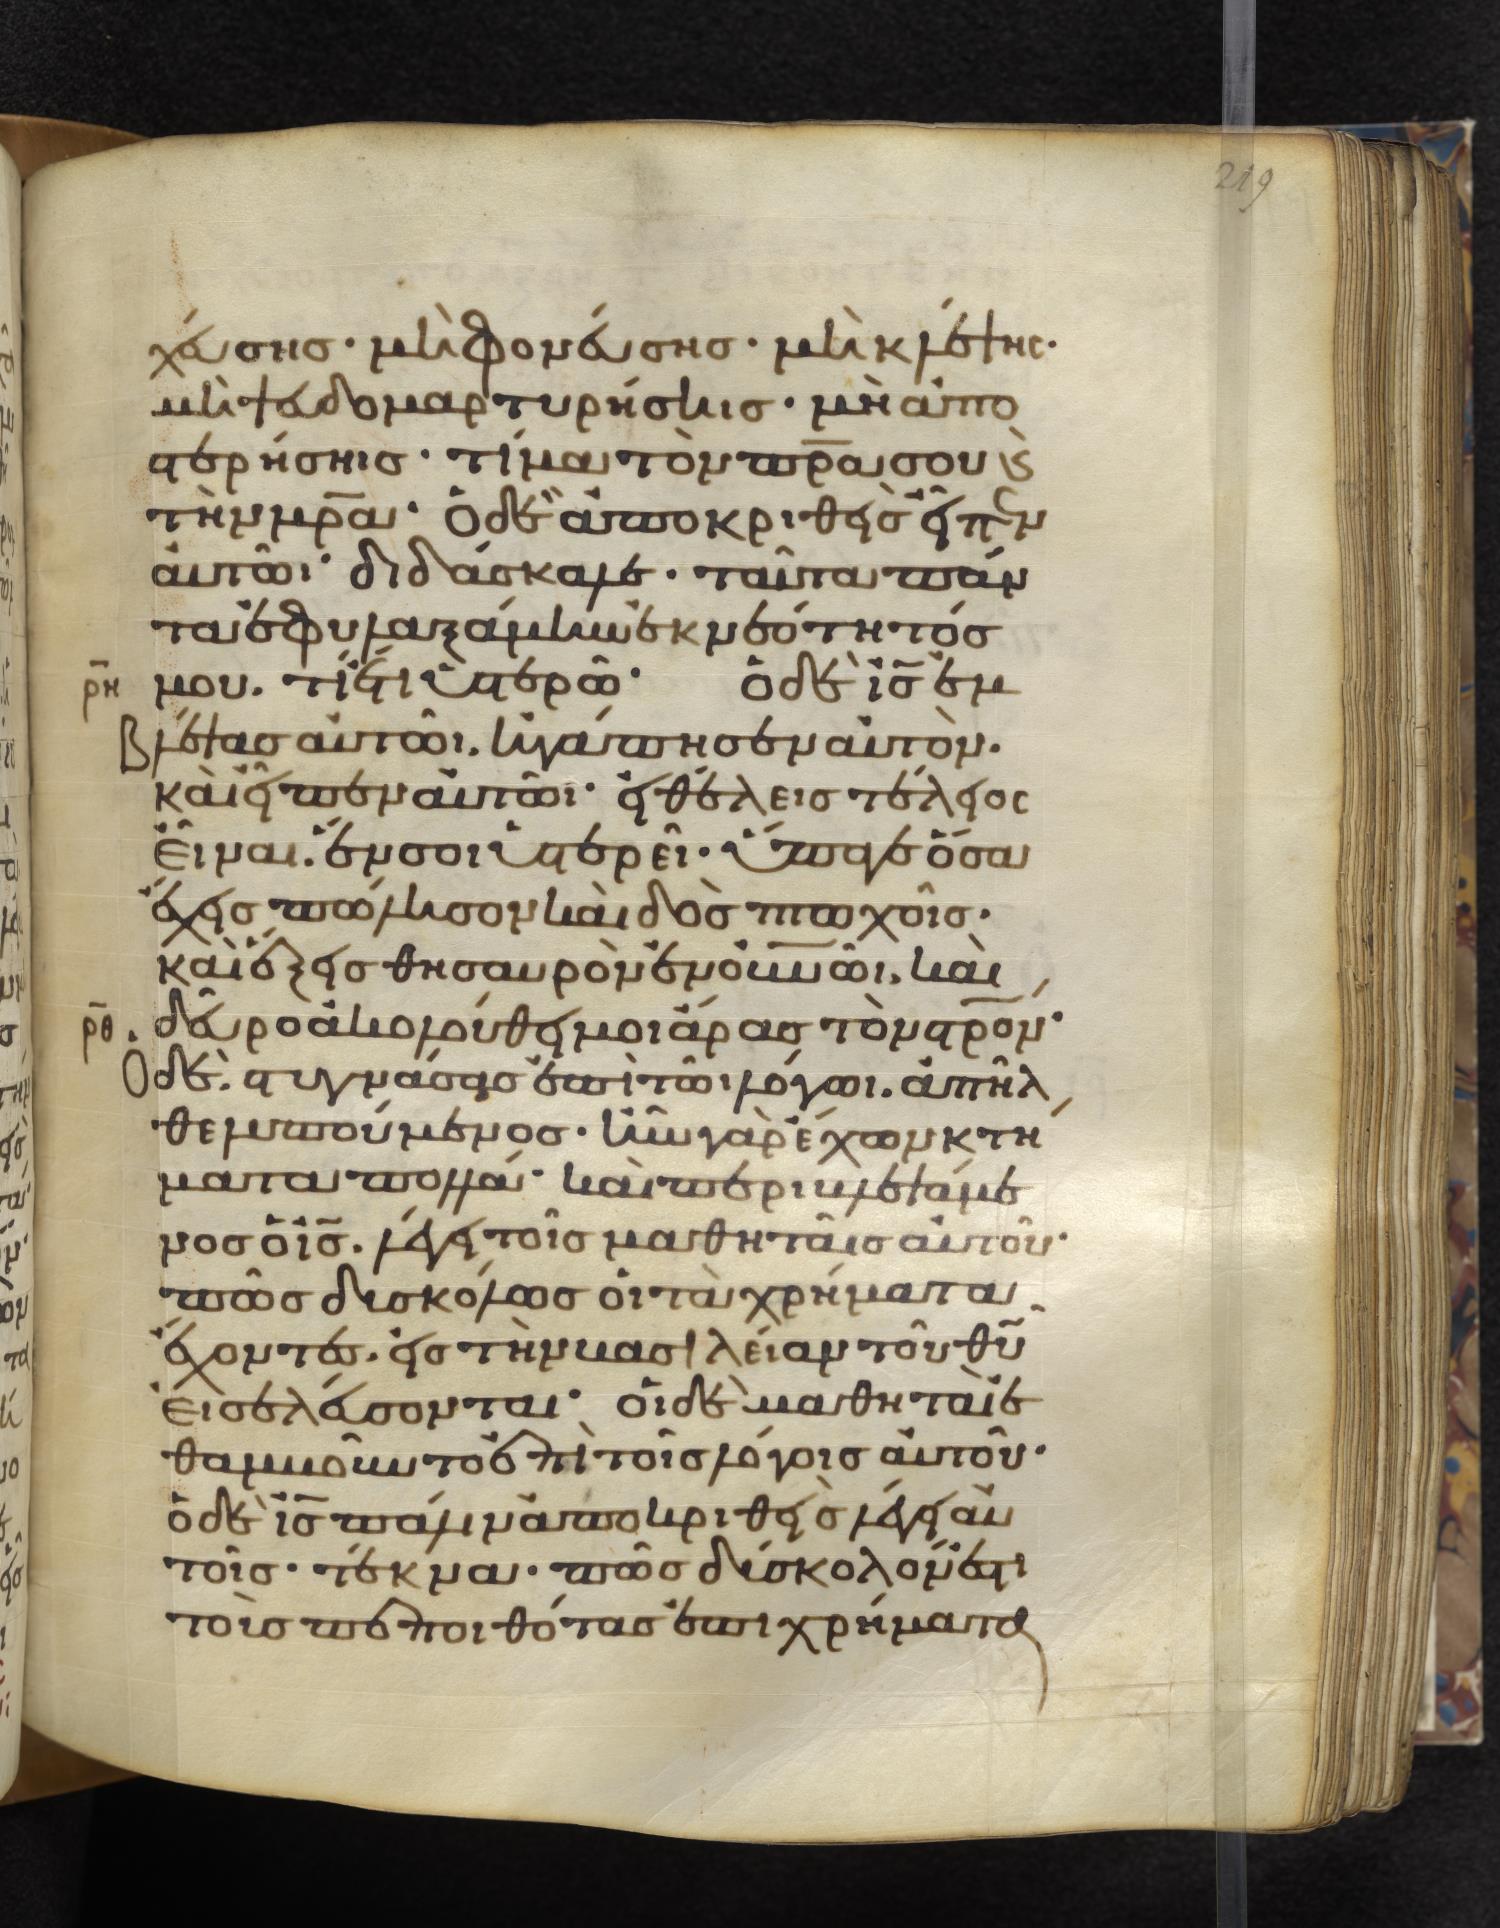 219
χεύσης· μὴ φονεύσης· μὴ κλέψης·
μὴ ψευδομαρτυρήσηις· μὴ ἀπο
στερήσηις· τίμα τὸν πρ̅α σου ϗ
τὴν μρ̅α· Ὁ δὲ ἀποκριθεὶς εἶπεν
αὐτῶι· διδάσκαλε· ταῦτα πάν
τα ἐφυλαξάμην ἐκ νεότητός
ρ̅η μου. τί ἔτι ὑστερῶ· ὁ δὲ ι̅ς̅ ἐμ
βλέψας αὐτῶι. ἠγάπησεν αὐτὸν.
καὶ εἶπεν αὐτῶι· εἰ θέλεις τέλειος
εἶναι. ἕν σοι ὑστερεῖ· ὕπαγε ὅσα
ἔχεις πώλησον καὶ δὸς πτωχοῖς·
καὶ ἕξεις θησαυρὸν ἐν ο̅υ̅ν̅ῶι. καὶ
ρ̅θ δεῦρο ἀκολούθει μοι ἄρας τὸν στρ̅ον·
Ὁ δὲ. στυγνάσας ἐπὶ τῶι λόγωι. ἀπῆλ
θε λυπούμενος· ἦν γὰρ ἔχων κτή
ματα πολλά· καὶ περιβλεψάμε
νος ὁ ι̅ς̅. λέγει τοῖς μαθηταῖς αὐτοῦ·
πῶς δυσκόλως οἱ τὰ χρήματα
ἔχοντες. εἰς τὴν βασιλείαν τοῦ θ̅υ̅
εἰσελεύσονται· οἱ δὲ μαθηταὶ ἐ
θαμβοῦντο ἐπὶ τοῖς λόγοις αὐτοῦ·
ὁ δὲ ι̅ς̅ πάλιν ἀποκριθεὶς λέγει αὐ
τοῖς· τέκνα· πῶς δύσκολόν ἐστι
τοὺς πεποιθότας ἐπὶ χρήματα